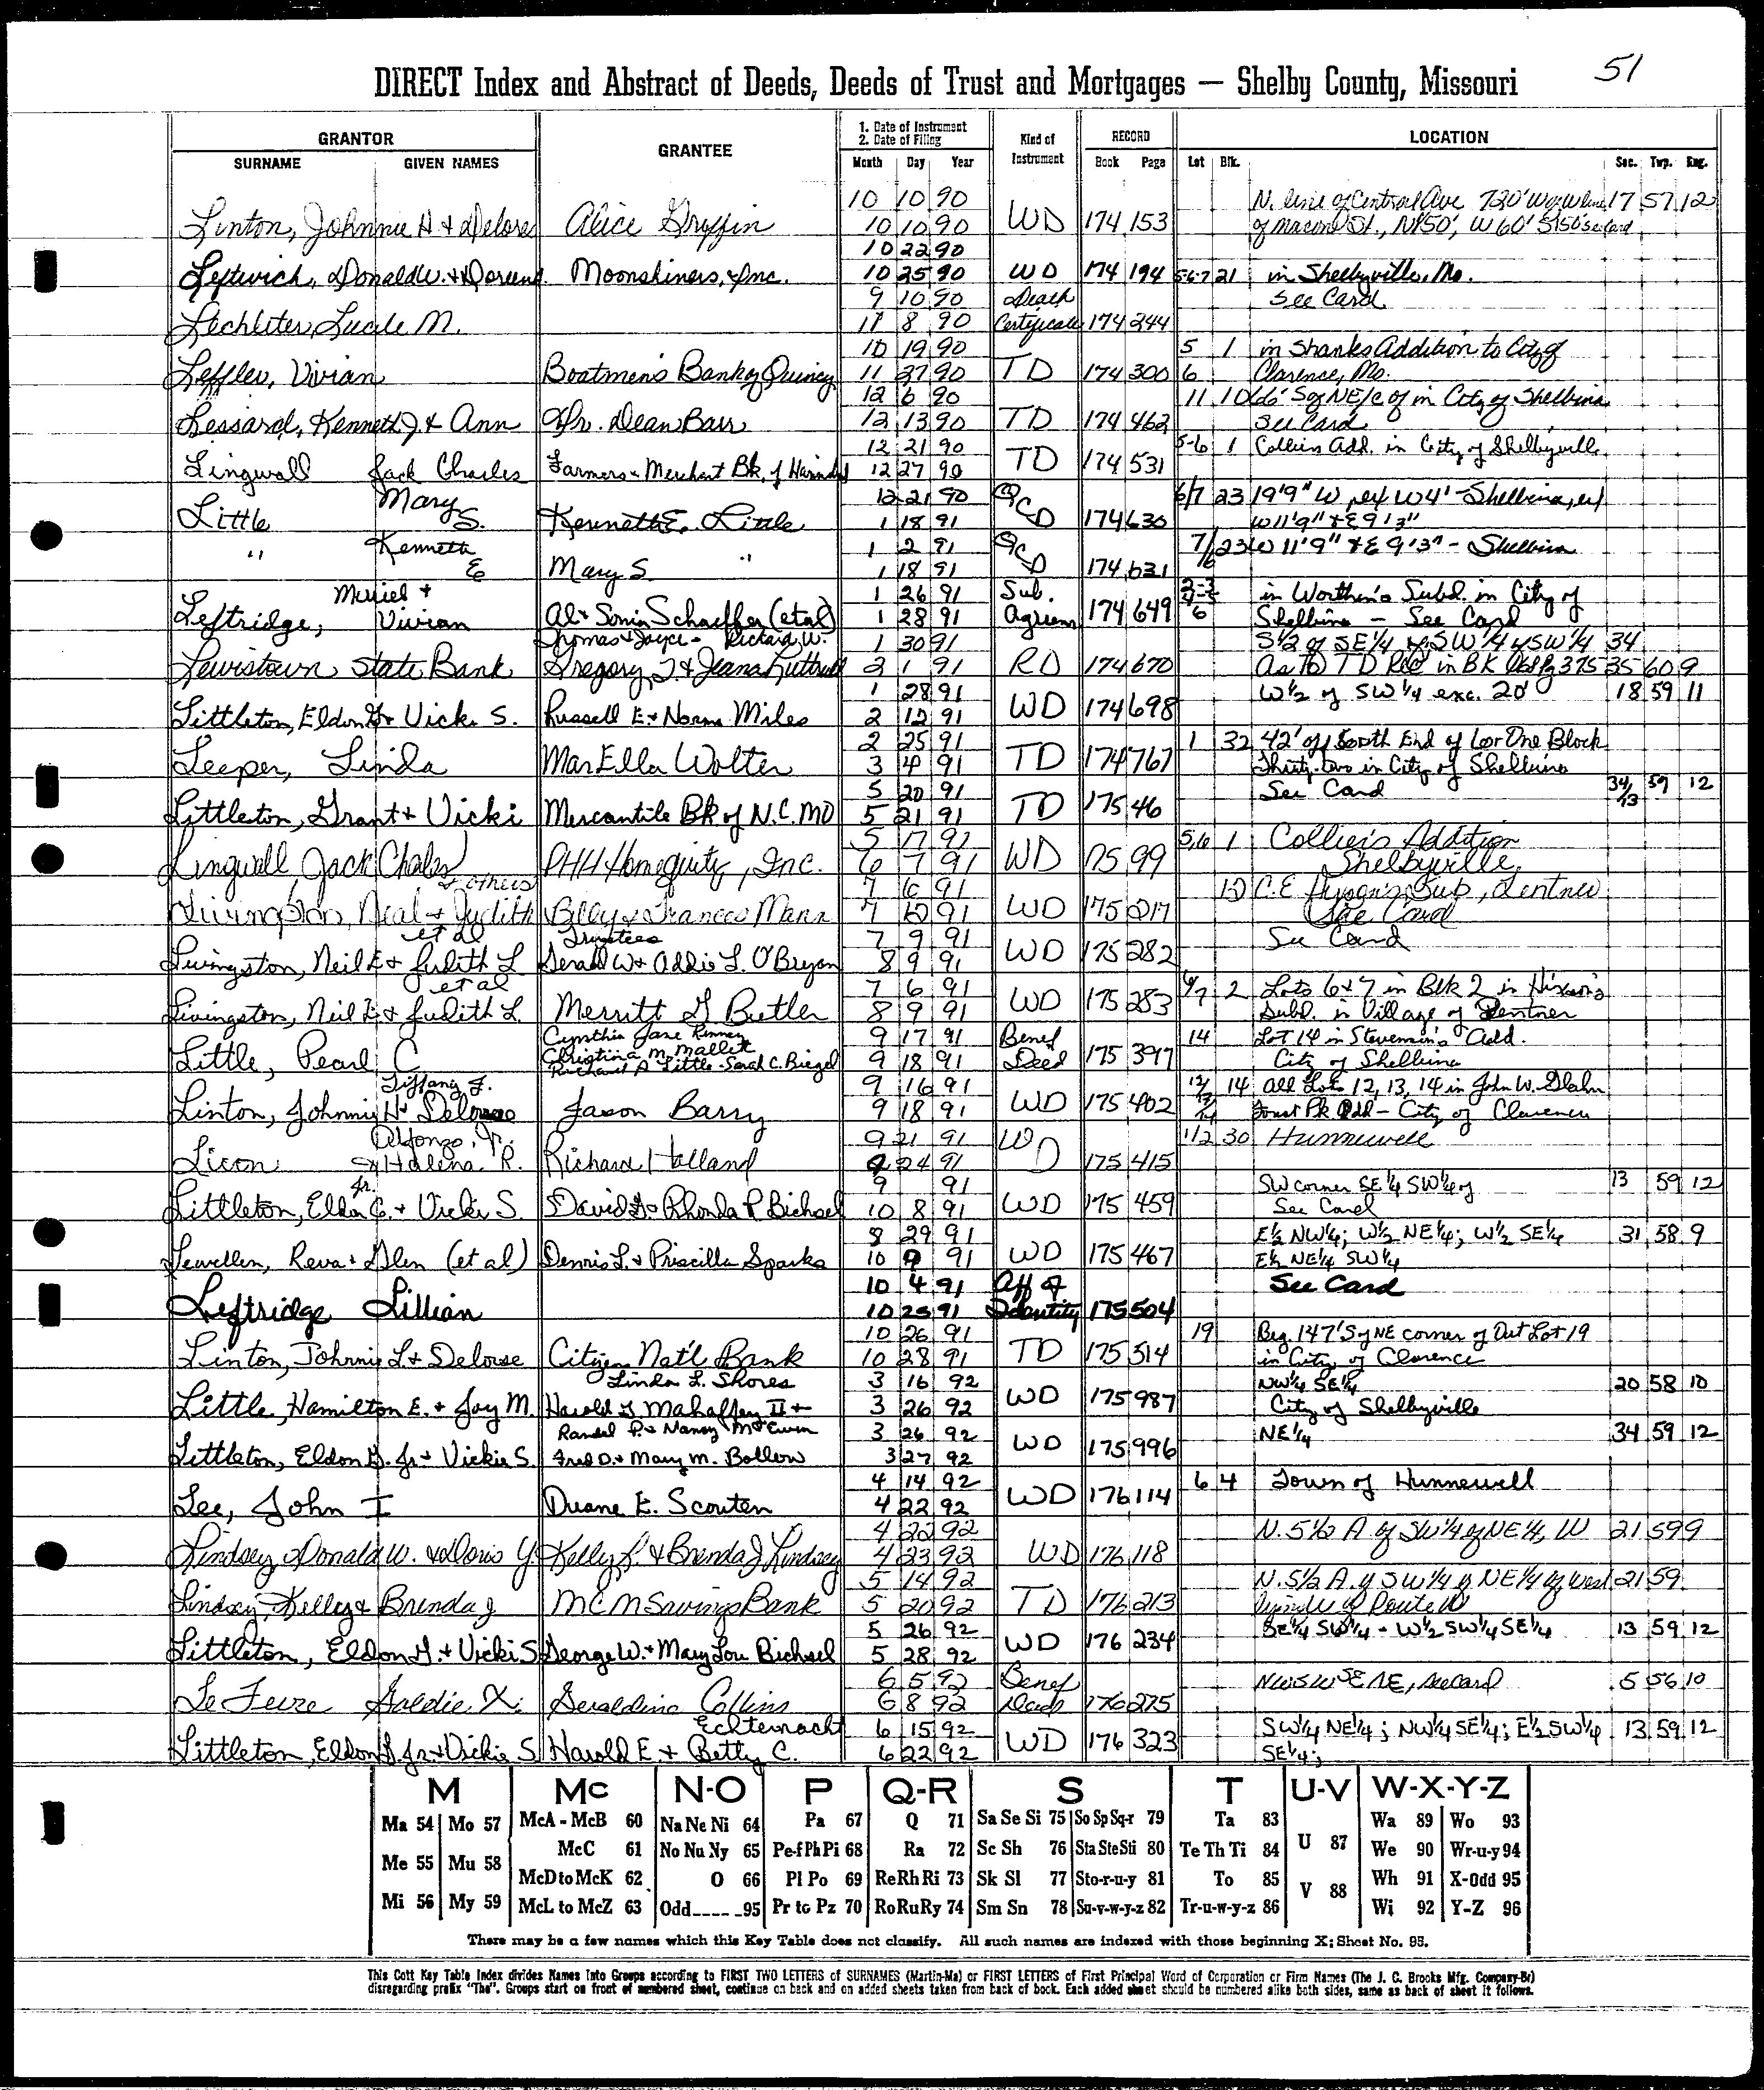 51
DIRECT Index and Abstract of Deeds, Deeds of Trust and Mortgages — Shelby County, Missouri
GRANTOR
SURNAME GIVEN NAMES
GRANTEE
1. Date of Instrument
2. Date of Filing
Month Day Year
Kind of Instrument
RECORD
Book Page
LOCATION
Lot Blk. Sec. Twp. Rng.
10 10 90 N. line of Central Ave 720' W of W line 17 57 12
Linton, Johnnie H & Delores Alice Gryffin 10 10 90 WD 174 153 of Macon St., N 150', W 60' S 150' See Card
10 22 90
Leftwich, Donald W. & Doreen Moonshiners, Inc. 10 25 90 WD 174 194 5-6-7 21 in Shelbyville, Mo.
9 10 90 Death See Card
Lechliter, Lucile M. 11 8 90 Certificate 174 244
10 19 90 5 1 in Shanks Addition to City of
Leffler, Vivian Boatmen's Bank of Quincy 11 27 90 TD 174 300 6 Clarence, Mo.
12 6 90 11 10 66' S of NE/c of in City of Shelbina
Lessard, Kenneth J. & Ann Dr. Dean Barr 12 13 90 TD 174 462 See Card
12 21 90 5-6 1 Colliers Add. in City of Shelbyville
Lingwall Jack Charles Farmers & Merchant Bk. of Hannibal 12 27 90 TD 174 531
Mary 12 21 90 QCD 6/7 23 19'9" W W4' - Shelbina
Little S. Kenneth E. Little 1 18 91 174 630 W 11'9" & E 9'3"
Kenneth 1 2 91 QCD 7/6 23 W 11'9" & E 9'3" - Shelbina
" E Mary S. " 1 18 91 174 631
Muriel & 1 26 91 Sub. 2-3 4-5 in Worthen's Subd. in City of
Leftridge, Vivian Al & Sonia Schaeffer (et al) 1 28 91 Agreem 174 649 6 Shelbina - See Card
Thomas & Joyce - Richard W. 1 30 91 S 1/2 of SE 1/4 of SW 1/4 of SW 1/4 34
Lewistown State Bank Gregory J. & Jeana Luttrull 2 1 91 RD 174 670 As to TD Rec in BK Pg 375 35 60 9
1 28 91 W 1/2 of SW 1/4 exc. 20' 18 59 11
Littleton, Eldon G & Vicki S. Russell E & Norma Miles 2 12 91 WD 174 698
2 25 91 1 32 42' off South End of Lot One Block
Leeper, Linda MarElla Wolter 3 4 91 TD 174 767 Thirty-two in City of Shelbina
5 20 91 See Card 34/13 59 12
Littleton, Grant & Vicki Mercantile Bk of N.C. MO 5 21 91 TD 175 46
5 17 91 5,6 1 Collier's Addition
Lingwall, Jack Charles PHH Homequity, Inc. 6 7 91 WD 175 99 Shelbyville
& others 7 6 91 12 C.E. Hixson's Sub, Lentner
Livingston, Neal & Judith Billy & Frances Mann 7 12 91 WD 175 217 See Card
et al Trustees 7 9 91 See Card
Livingston, Neil E & Judith L Gerald W & Addie L. O'Bryan 8 9 91 WD 175 282
et al 7 6 91 6/7 2 Lots 6 & 7 in Blk 2 in Hixson's
Livingston, Neil E & Judith L. Merritt G Butler 8 9 91 WD 175 283 Subd. in Village of Lentner
Cynthia Jane Rinney 9 17 91 Benef 14 Lot 14 in Stevenson's Add.
Little, Pearl C Christina M. Mallett Richard A Little - Sarah C. Biegel 9 18 91 Deed 175 397 City of Shelbina
Tiffany J. 9 16 91 12/13/14 14 All Lots 12, 13, 14 in John W. Glahn
Linton, Johnnie H & Delorse Jason Barry 9 18 91 WD 175 402 Forest Pk Add - City of Clarence
Alfonzo, Jr. 9 21 91 WD 1/2 30 Hunnewell
Licon & Halena R. Richard Holland 9 24 91 175 415
Jr. 9 91 SW corner SE 1/4 SW 1/4 of 13 59 12
Littleton, Eldon G. & Vickie S. David G & Rhonda P Bichsel 10 8 91 WD 175 459 See Card
8 29 91 E 1/2 NW 1/4; W 1/2 NE 1/4; W 1/2 SE 1/4 31 58 9
Lewellen, Reva & Glen (et al) Dennis L. & Priscilla Sparks 10 9 91 WD 175 467 E 1/2 NE 1/4 SW 1/4
10 4 91 Aff of See Card
Leftridge Lillian 10 25 91 Identity 175 504
10 26 91 19 Beg. 147' S of NE corner of Out Lot 19
Linton, Johnnie L & Delorse Citizen Nat'l Bank 10 28 91 TD 175 514 in City of Clarence
Linda L. Shores 3 16 92 NW 1/4 SE 1/4 20 58 10
Little, Hamilton E. & Joy M. Harold G Mahaffey II & 3 26 92 WD 175 987 City of Shelbyville
Randal P. & Nancy McEwen 3 26 92 NE 1/4 34 59 12
Littleton, Eldon G. Jr & Vickie S. Fred D. & Mary M. Bollow 3 27 92 WD 175 996
4 14 92 6 4 Town of Hunnewell
Lee, John I Duane E. Scouten 4 22 92 WD 176 114
4 22 92 N. 5 1/2 A of SW 1/4 of NE 1/4, W 21 59 9
Lindsey, Donald W. & Doris Y. Kelly R. & Brenda J Lindsey 4 23 92 WD 176 118
5 14 92 N. 5 1/2 A. of SW 1/4 of NE 1/4 of West 21 59
Lindsey, Kelley & Brenda J MCM Savings Bank 5 20 92 TD 176 213 of Route
5 26 92 SE 1/4 SW 1/4 - W 1/2 SW 1/4 SE 1/4 13 59 12
Littleton, Eldon G. & Vicki S George W. & Mary Lou Bichsel 5 28 92 WD 176 234
6 5 92 Benef NW SW SE NE, see card 5 56 10
Le Fevre Goldie X. Geraldine Collins 6 8 92 Deed 176 275
Echternacht 6 15 92 SW 1/4 NE 1/4; NW 1/4 SE 1/4; E 1/2 SW 1/4 13 59 12
Littleton, Eldon G Jr & Vickie S Harold E. & Betty C. 6 22 92 WD 176 323 SE 1/4;
M Mc N-O P Q-R S T U-V W-X-Y-Z
Ma 54 Mo 57 McA - McB 60 Na Ne Ni 64 Pa 67 Q 71 Sa Se Si 75 So Sp Sq-r 79 Ta 83 Wa 89 Wo 93
McC 61 No Nu Ny 65 Pe-f Ph Pi 68 Ra 72 Sc Sh 76 Sta Ste Sti 80 Te Th Ti 84 U 87 We 90 Wr-u-y 94
Me 55 Mu 58 McD to McK 62 O 66 Pl Po 69 Re Rh Ri 73 Sk Sl 77 Sto-r-u-y 81 To 85 V 88 Wh 91 X-Odd 95
Mi 56 My 59 McL to McZ 63 Odd ---- 95 Pr to Pz 70 Ro Ru Ry 74 Sm Sn 78 Su-v-w-y-z 82 Tr-u-w-y-z 86 Wi 92 Y-Z 96
There may be a few names which this Key Table does not classify. All such names are indexed with those beginning X; Sheet No. 95.
This Cott Key Table Index divides Names into Groups according to FIRST TWO LETTERS of SURNAMES (Martin-Ma) or FIRST LETTERS of First Principal Word of Corporation or Firm Names (The J. C. Brooks Mfg. Company-Br)
disregarding prefix "The". Groups start on front of numbered sheet, continue on back and on added sheets taken from back of book. Each added sheet should be numbered alike both sides, same as back of sheet it follows.